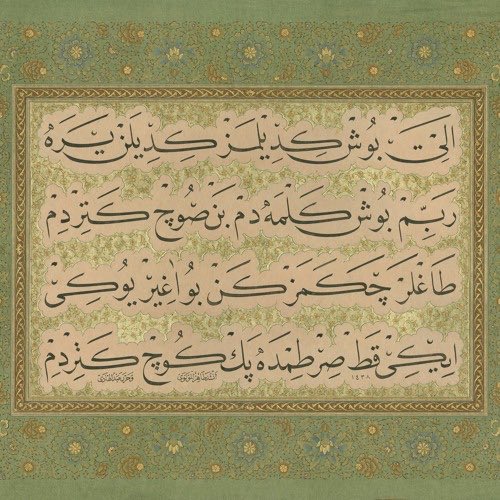 الی بُوش كِدِیلمَز كِدِیلَن یَرَه
رَبِّم بُوش كَلمَه‌دِم بَن صُوچ كَتِردِم
طَاغلَر چَكَمَزكَن بُو اغِیر یُوكِی
ایكِی قَط صِرطِمدَه پَك كُوچ كَتِردِم
١٤٣٨